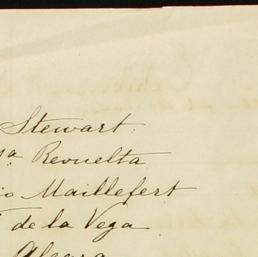 Stewart.
sa Revuelta
io Maillefert
de la Vega